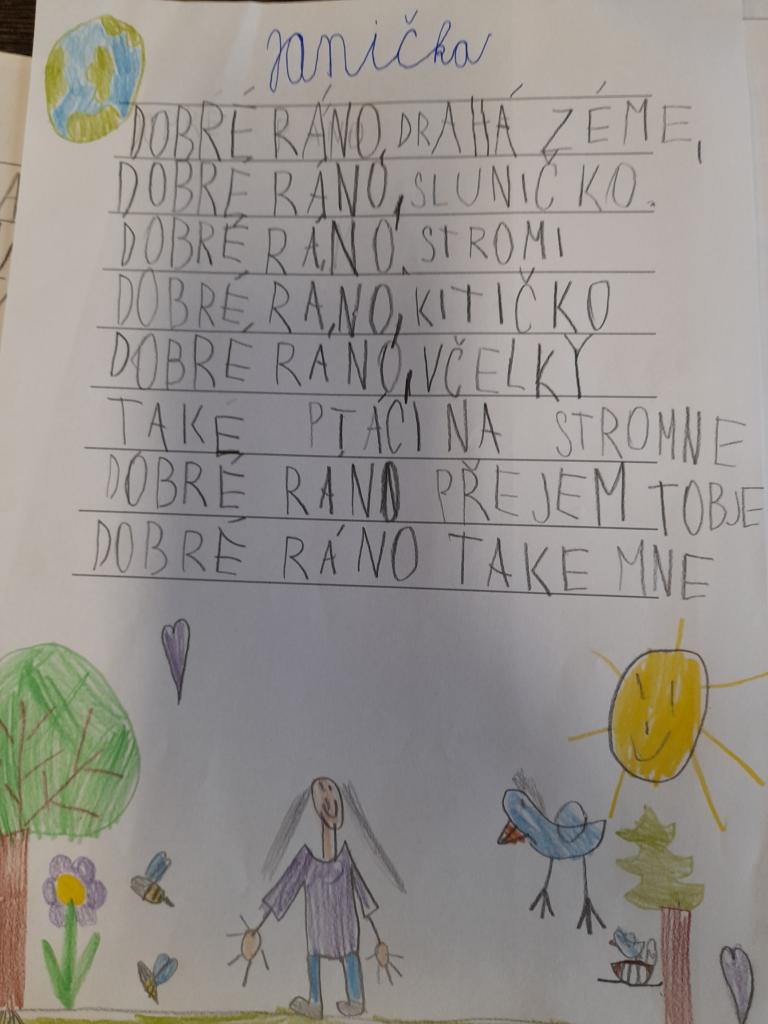 Janička
DOBRÉ RÁNO, DRAHÁ ZÉME,
DOBRÉ RÁNO, SLUNIČKO.
DOBRÉ RÁNO, STROMI
DOBRÉ RÁNO, KITIČKO
DOBRÉ RÁNO, VČELKY
TAKE PTÁCI NA STROMNE
DOBRÉ RANO PŘEJEM TOBJE
DOBRÉ RÁNO TAKE MNE